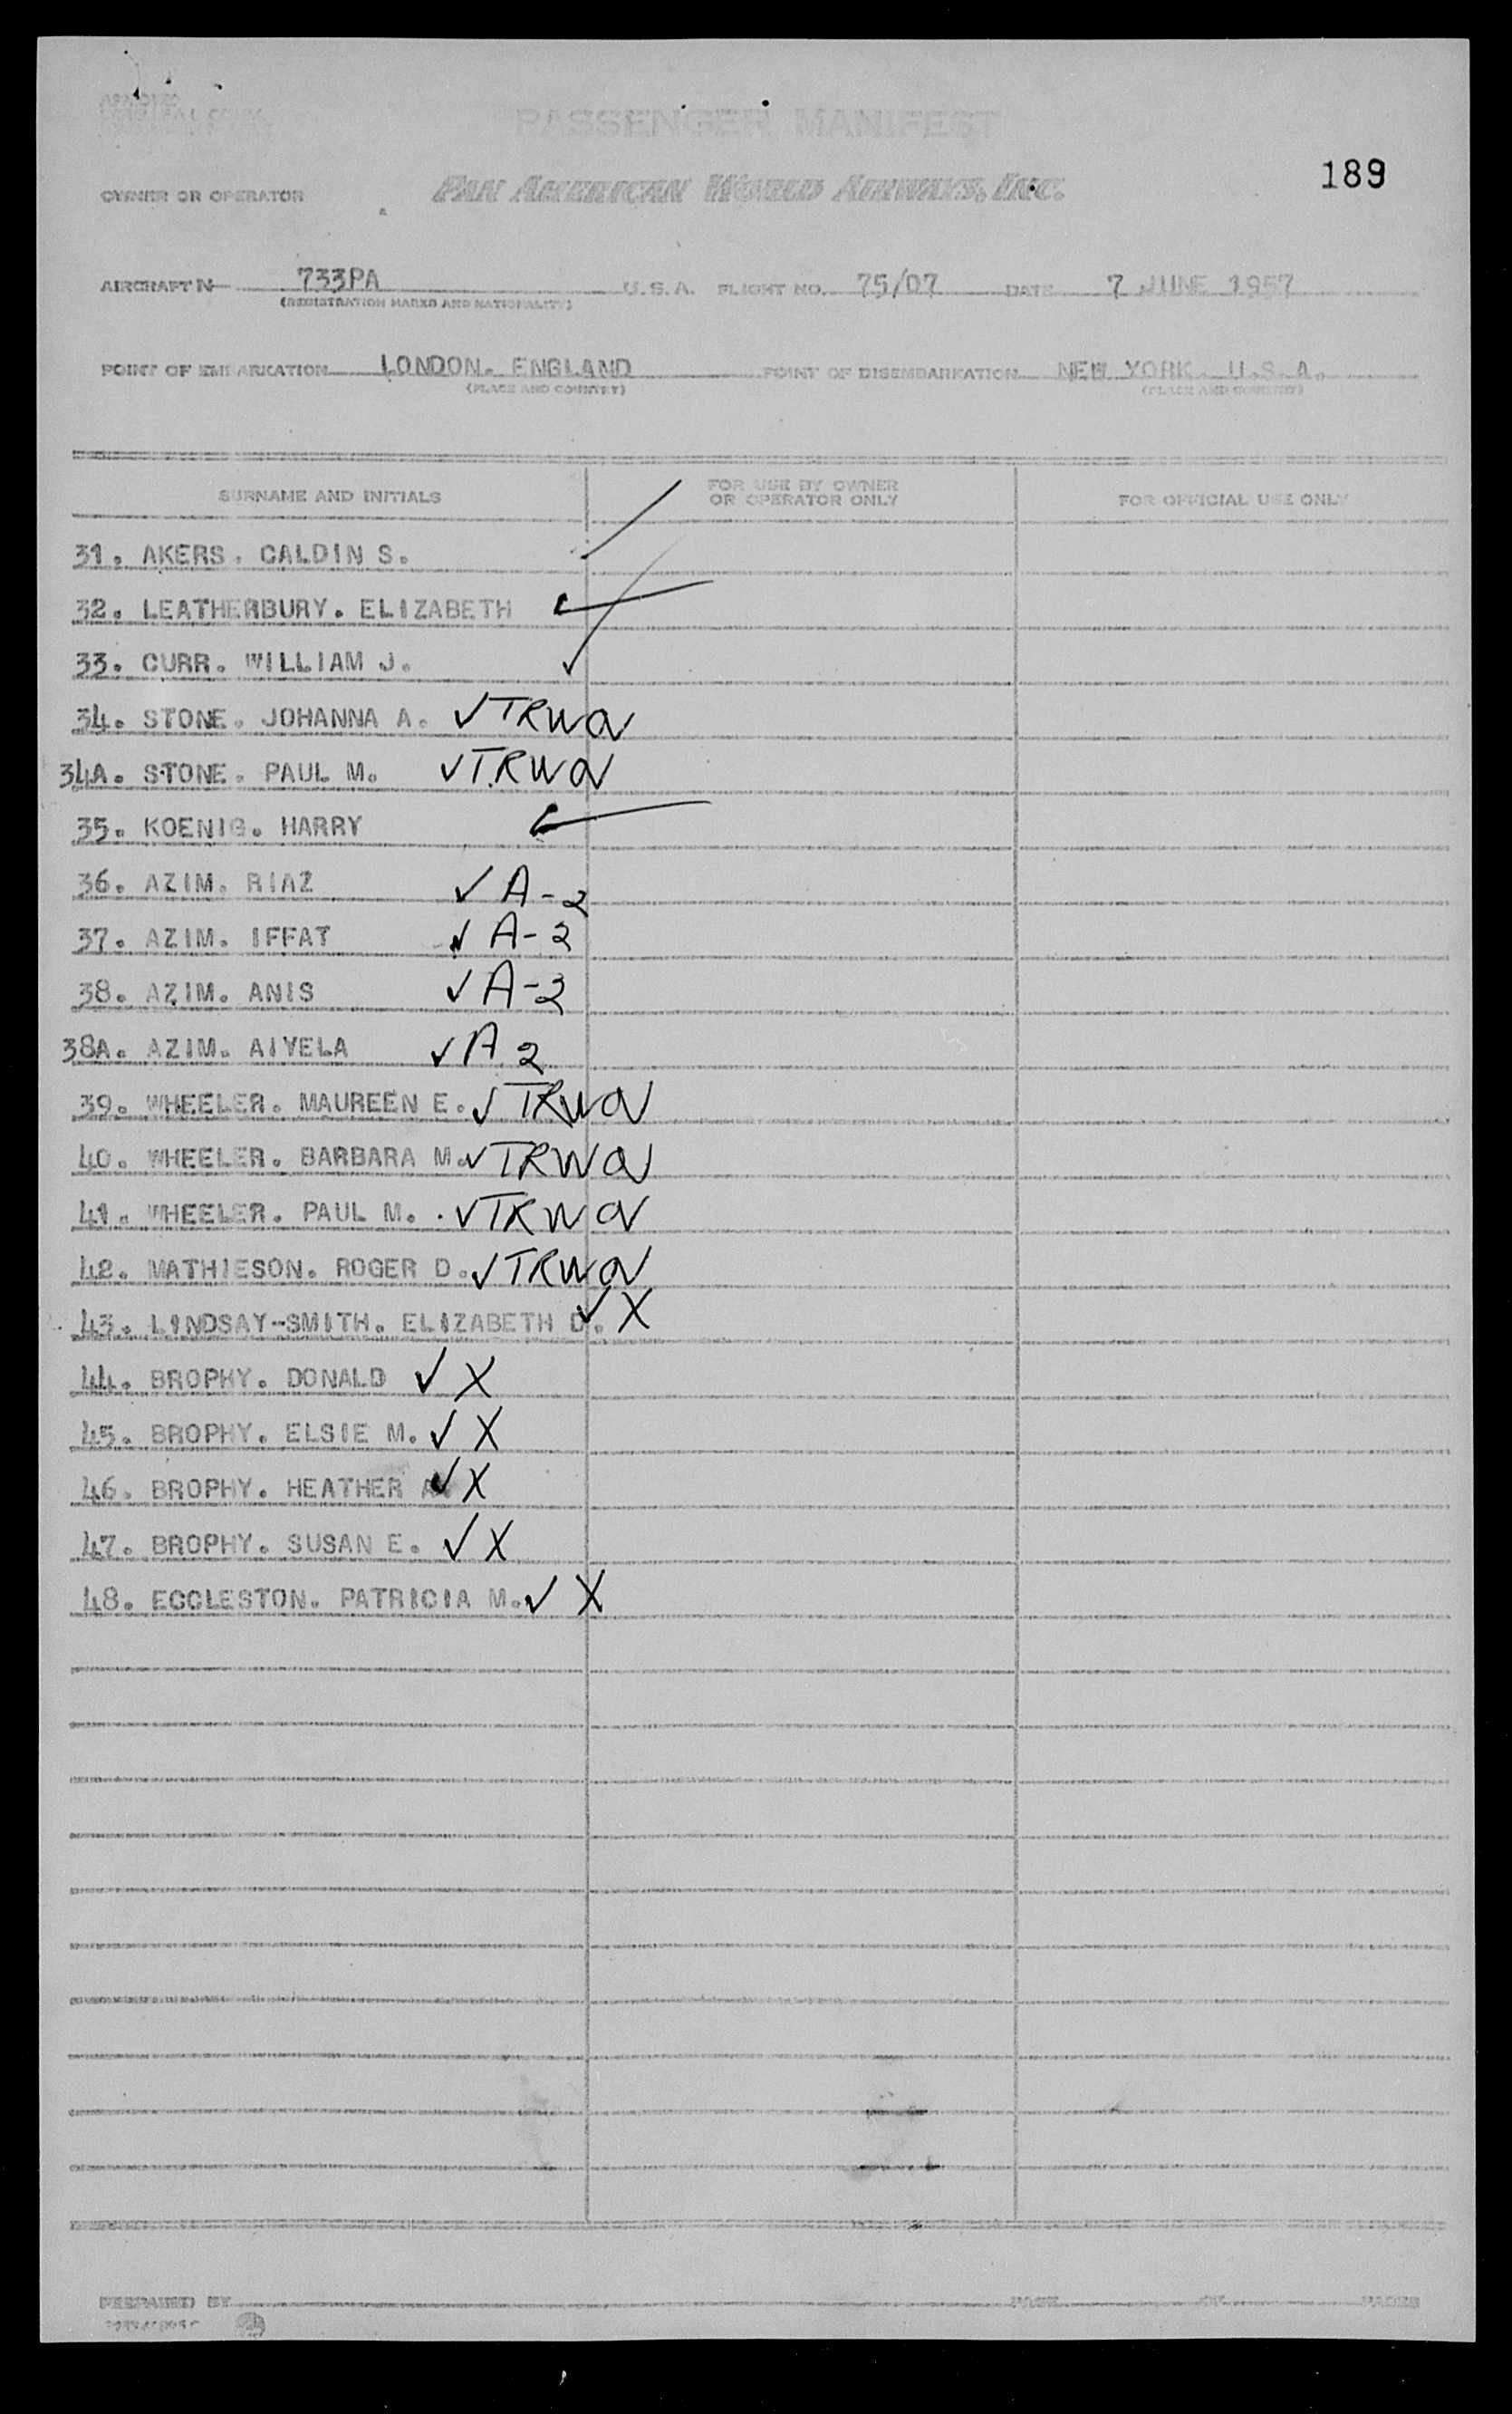 PASSENGER MANIFEST
189
OWNER OR OPERATOR PAN AMERICAN WORLD AIRWAYS, INC.
AIRCRAFT N 733PA U.S.A. FLIGHT NO. 75/07 DATE 7 JUNE 1957
(REGISTRATION MARKS AND NATIONALITY)
POINT OF EMBARKATION LONDON. ENGLAND POINT OF DISEMBARKATION NEW YORK. U.S.A.
(PLACE AND COUNTRY) (PLACE AND COUNTRY)
SURNAME AND INITIALS FOR USE BY OWNER OR OPERATOR ONLY FOR OFFICIAL USE ONLY
31. AKERS. CALDIN S.
32. LEATHERBURY. ELIZABETH
33. CURR. WILLIAM J. ✓
34. STONE. JOHANNA A. ✓ TRWO
34A. STONE. PAUL M. ✓ TRWO
35. KOENIG. HARRY
36. AZIM. RIAZ ✓ A-2
37. AZIM. IFFAT ✓ A-2
38. AZIM. ANIS ✓ A-2
38A. AZIM. AIYELA ✓ A 2
39. WHEELER. MAUREEN E. ✓ TRWO
40. WHEELER. BARBARA M. ✓ TRWO
41. WHEELER. PAUL M. ✓ TRWO
42. MATHIESON. ROGER D. ✓ TRWO
43. LINDSAY-SMITH. ELIZABETH D. ✓ X
44. BROPHY. DONALD ✓ X
45. BROPHY. ELSIE M. ✓ X
46. BROPHY. HEATHER A. ✓ X
47. BROPHY. SUSAN E. ✓ X
48. ECCLESTON. PATRICIA M. ✓ X
PREPARED BY PAGE OF PAGES